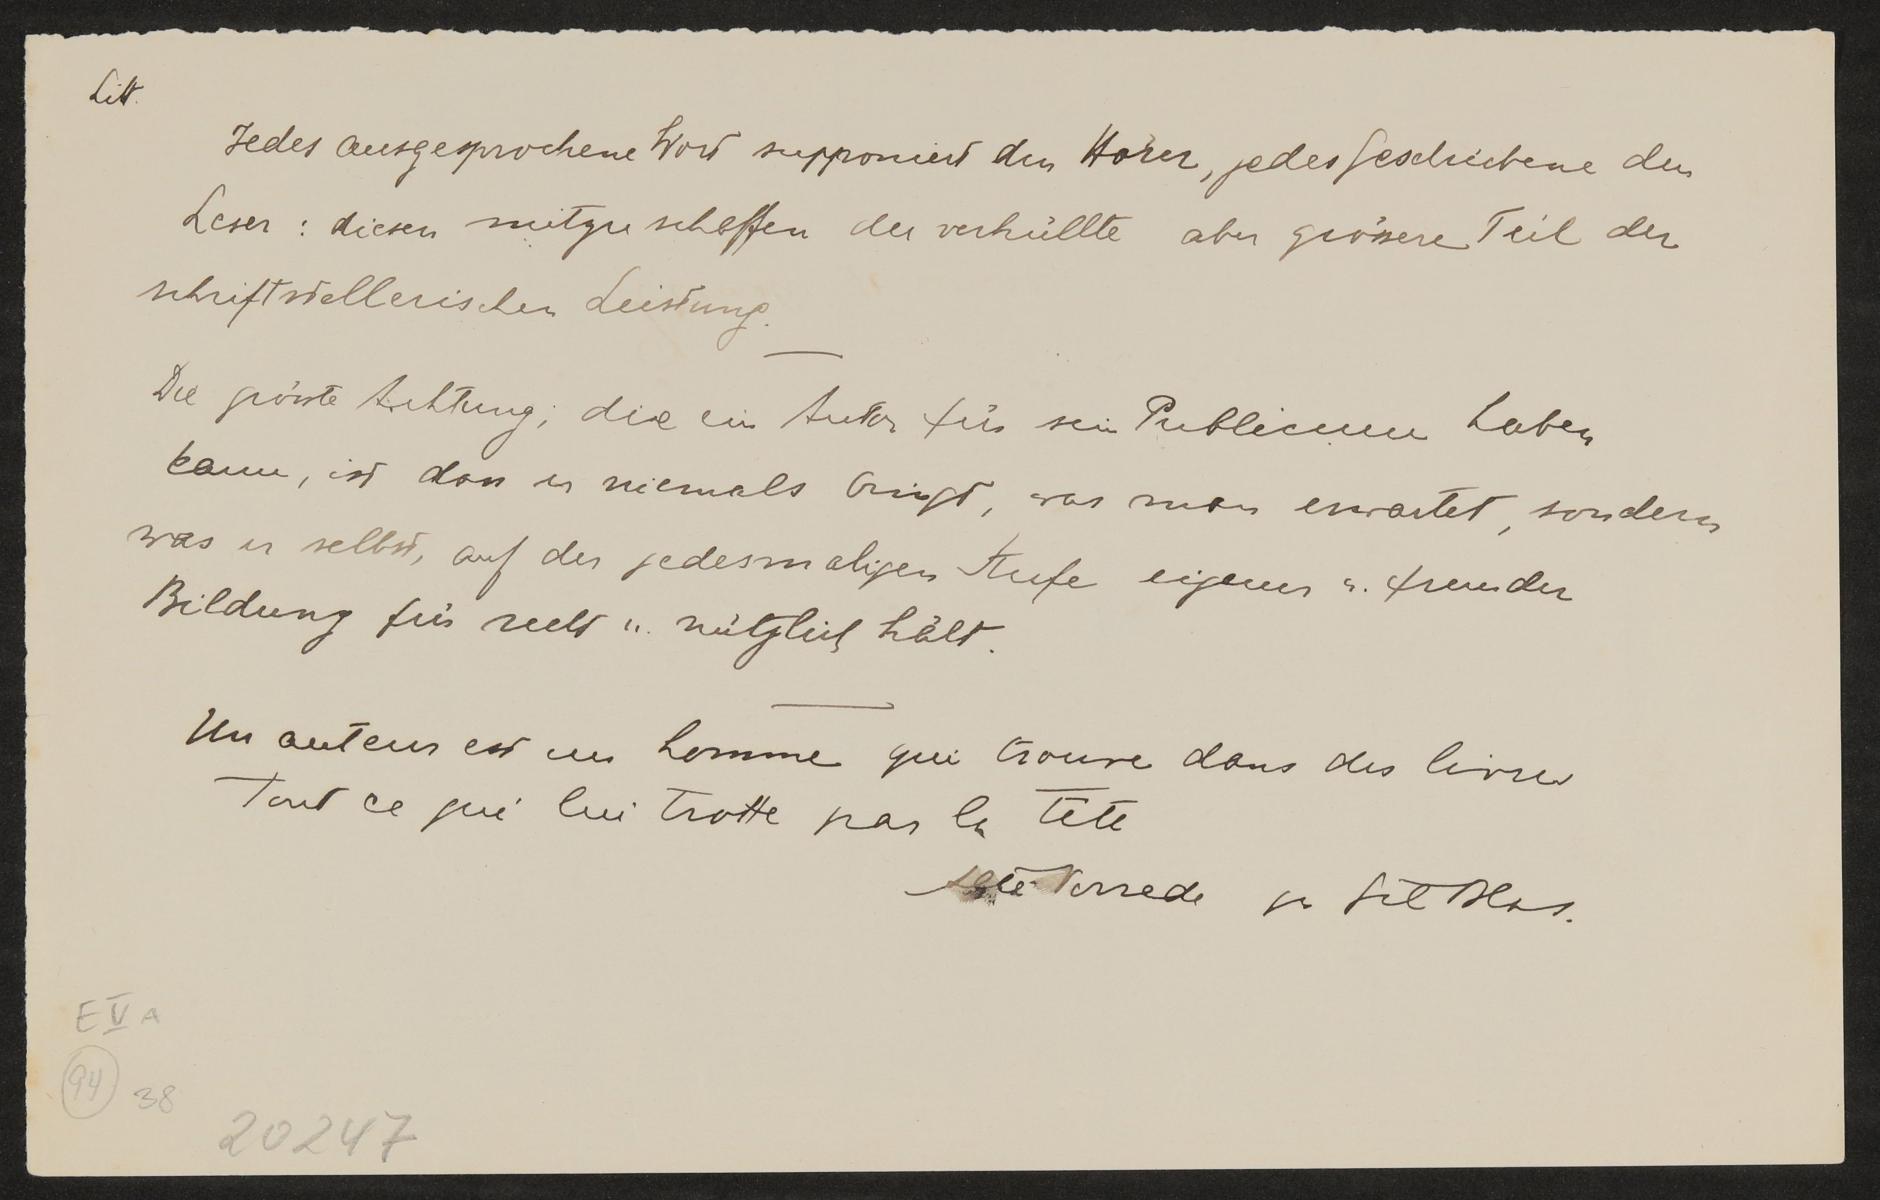 Litt.
Jedes ausgesprochene Wort supponiert den Hörer, jedes Geschriebene den
Leser: diesen mitzuschaffen der verhüllte aber grössere Teil der
schriftstellerischen Leistung.
Die grösste Achtung, die ein Autor für sein Publicum haben
kann, ist dass er niemals bringt, was man erwartet, sondern
was er selbst, auf der jedesmaligen Stufe eigener u. fremder
Bildung für recht u. nützlich hält.
Un auteur est un homme qui trouve dans des livres
Tout ce qui lui trotte par la tête
Vorrede zu Gil Blas.
E V A
94 38
20247